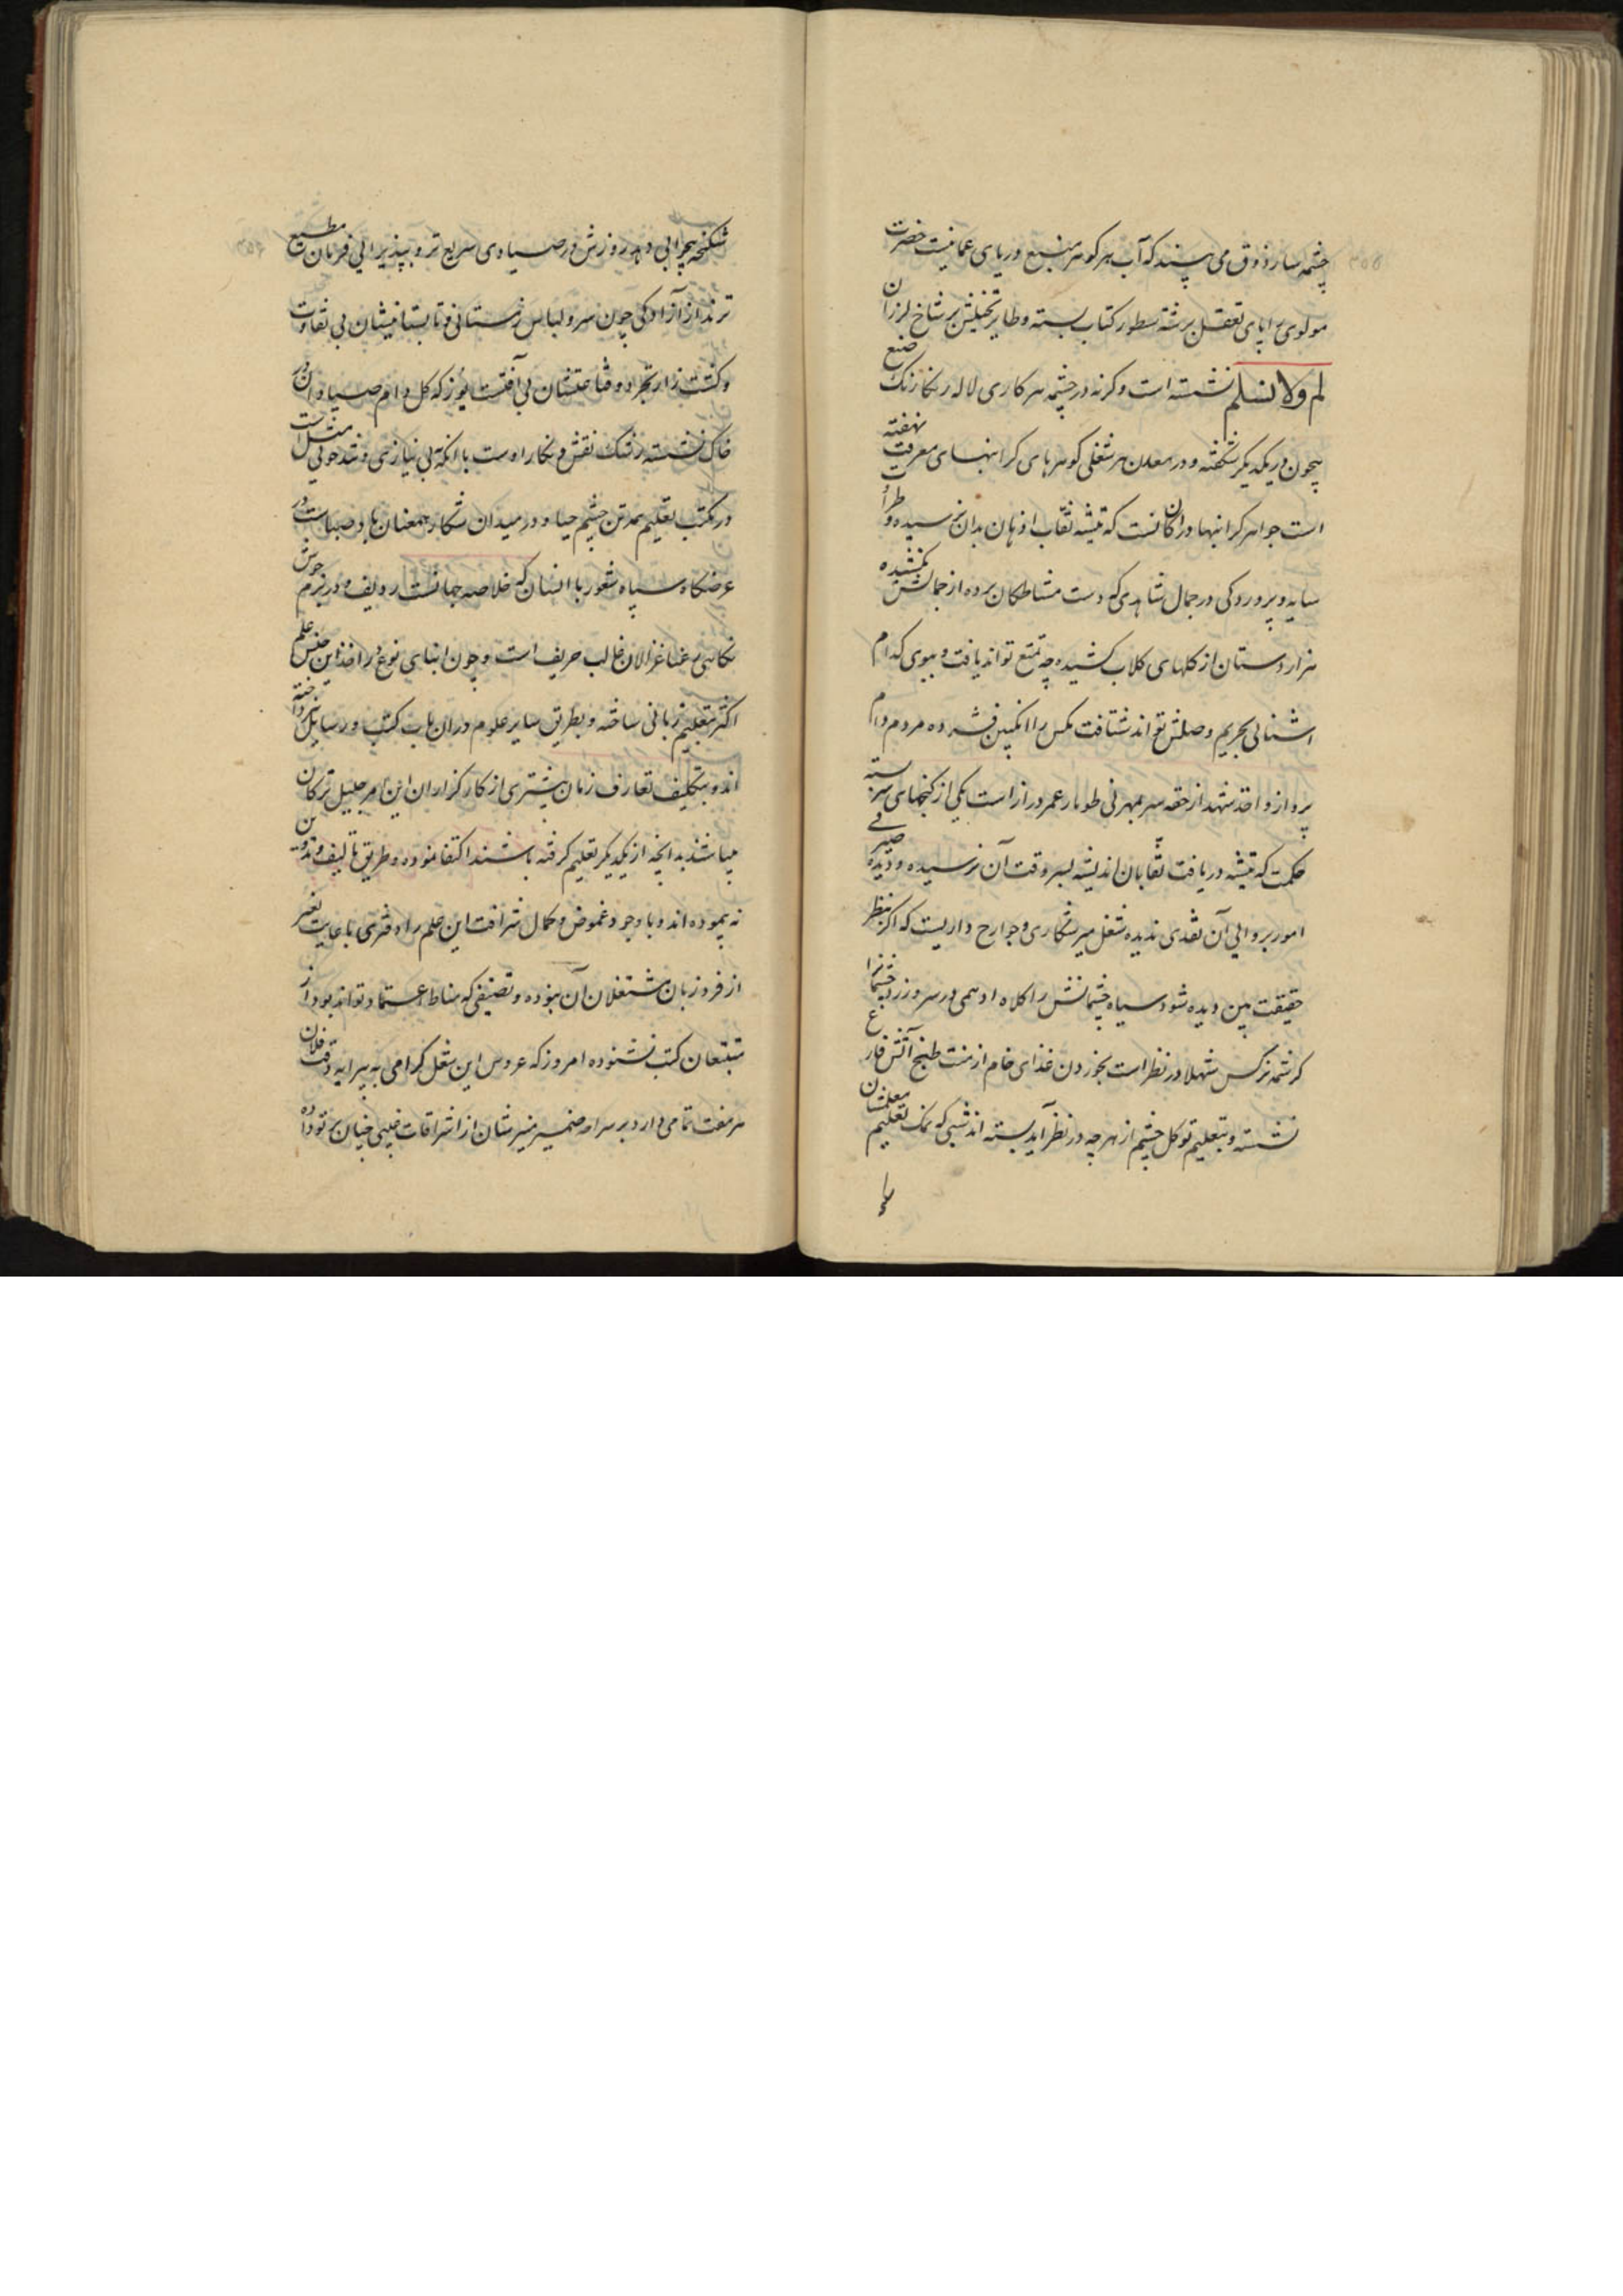 چشمه سار ذوق می پسند که آب هر گوهر منبع دریای عمانیت حضرت
مولوی را پای تعقل برشته سطور کتاب بسته و طایر تخیلش بر شاخ لرزان
لم ولا نسلم نشسته است و کرنه در چشمه هر کاری لاله رنگارنگ صنع
بیچون در یکدیکر شکفته و در معدن هر شغلی کوهرهای کرانبهای معرفت نهفته
است جواهر کرانبها در آن کانست که تیشه نقاب اذهان بدان نرسیده و طراوت
سایه پروردکی در جمال شاهدی که دست مشاطکان پرده از جمالش نکشیده
هزار دستان از کلهای کلاب کشیده چه تمتع تواند یافت و ببوی کدام
اشنائی بحریم وصلش تواند شتافت مکس را انکبین فشرده مردم دام
پرواز و اخذ شهد از حقه سر بمهر نی طومار عمر دراز است یکی از کنجهای سربسته
حکمت که تیشه دریافت نقابان اندیشه بسر وقت آن نرسیده و دیده صیرفی
امور بروائی آن نقدی ندیده شغل میرشکاری و جوارح داریست که اکر بنظر
حقیقت بین دیده شود سیاه چشمانش را کلاه ادهمی در سر و زرد چشمانرا
کرشمه نرکس شهلا در نظر است بخوردن غذای خام از منت طبخ آتش فارغ
نشسته و بتعلیم توکل چشم از هر چه در نظر آید بسته اند شبی که نمک تعلیم معلمشان
شکنجه بیخوابی دهد روزش در صیادی سریع تر و بپذیرائی فرمان مطیع
ترند از آزادکی چون سرو لباس زمستانی و تابستانیشان بی تفاوت
و کشت زار تجرد و قناعتشان بی آفت یوز که کل دام صیادان در
خاک نشسته رشک نقش و نکار اوست با آنکه بی نیازی و تند خوئی مثل است
در مکتب تعلیم همه تن چشم حیا و در میدان شکار همعنان باد صباست در
عرضکاه سپاه شعور با انسان که خلاصه جهانست ردیف و در بزم خوش
نکاهی رعنا غزالان غالب حریف است و چون ابنای نوع در اخذ این جنس علم
اکثر بتعلیم زبانی ساخته و بطریق سایر علوم در ان باب کتب و رسایل نپرداخته
اند و بتکلیف تعارف زمان بیشتری از کارکزاران این امر جلیل ترکان
میباشند بدانچه از یکدیکر تعلیم کرفته باشند اکتفا نموده و طریق تالیف و تدوین
نه پیموده اند و با وجود غموض و کمال شرافت این علم را دفتری با عایت تعبیر
از فر و زبان مشتغلان آن نبوده و تصنیفی که مناط اعتماد تواند بود از
متتبعان کتب نشنوده امروز که عروس این شغل کرامی به پیرایه وقت فلان
هر هفت تمامی دارد بر سر آمد ضمیر منیرشان از اشراقات غیبی چنان پرتو داده